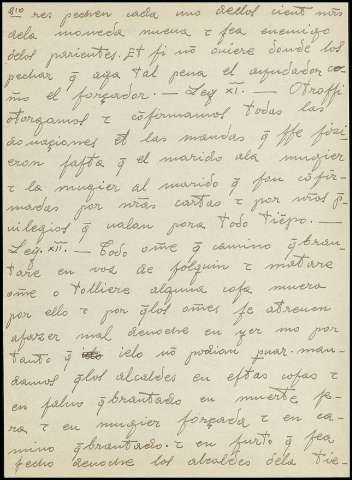 810
res pechen cada uno dellos cient mrs
dela moneda nueva τ sea enemigo
delos parientes. Et si nõ oviere donde los
pechar q̃ aya tal pena el ayudador co-
mo el forçador. — Ley XI. — Otrossi
otorgamos τ cõfirmamos todas las
donaçiones et las mandas q̃ sse fizi-
eron fasta q̃ el marido ala mugier
τ la mugier al marido q̃ son cõfir-
madas por nr̃as cartas τ por nr̃os p̃-
vilegios q̃ valan pora todo tiẽpo. —
Ley. XII. — Todo ome q̃ camino q̃bran-
tare en voz de folguin τ matare
ome o tolliere alguna cosa muera
por ello τ por q̃los om̃es se atreuen
afazer mal denoche en yermo por
tanto q̃ ielo nõ podian puar. man-
damos q̃los alcaldes en estas cosas τ
en saluo q̃brantado en muerte se-
ra τ en mugier forçada τ en ca-
mino q̃brantado. τ en furto q̃ sea
fecho denoche los alcaldes dela tie-